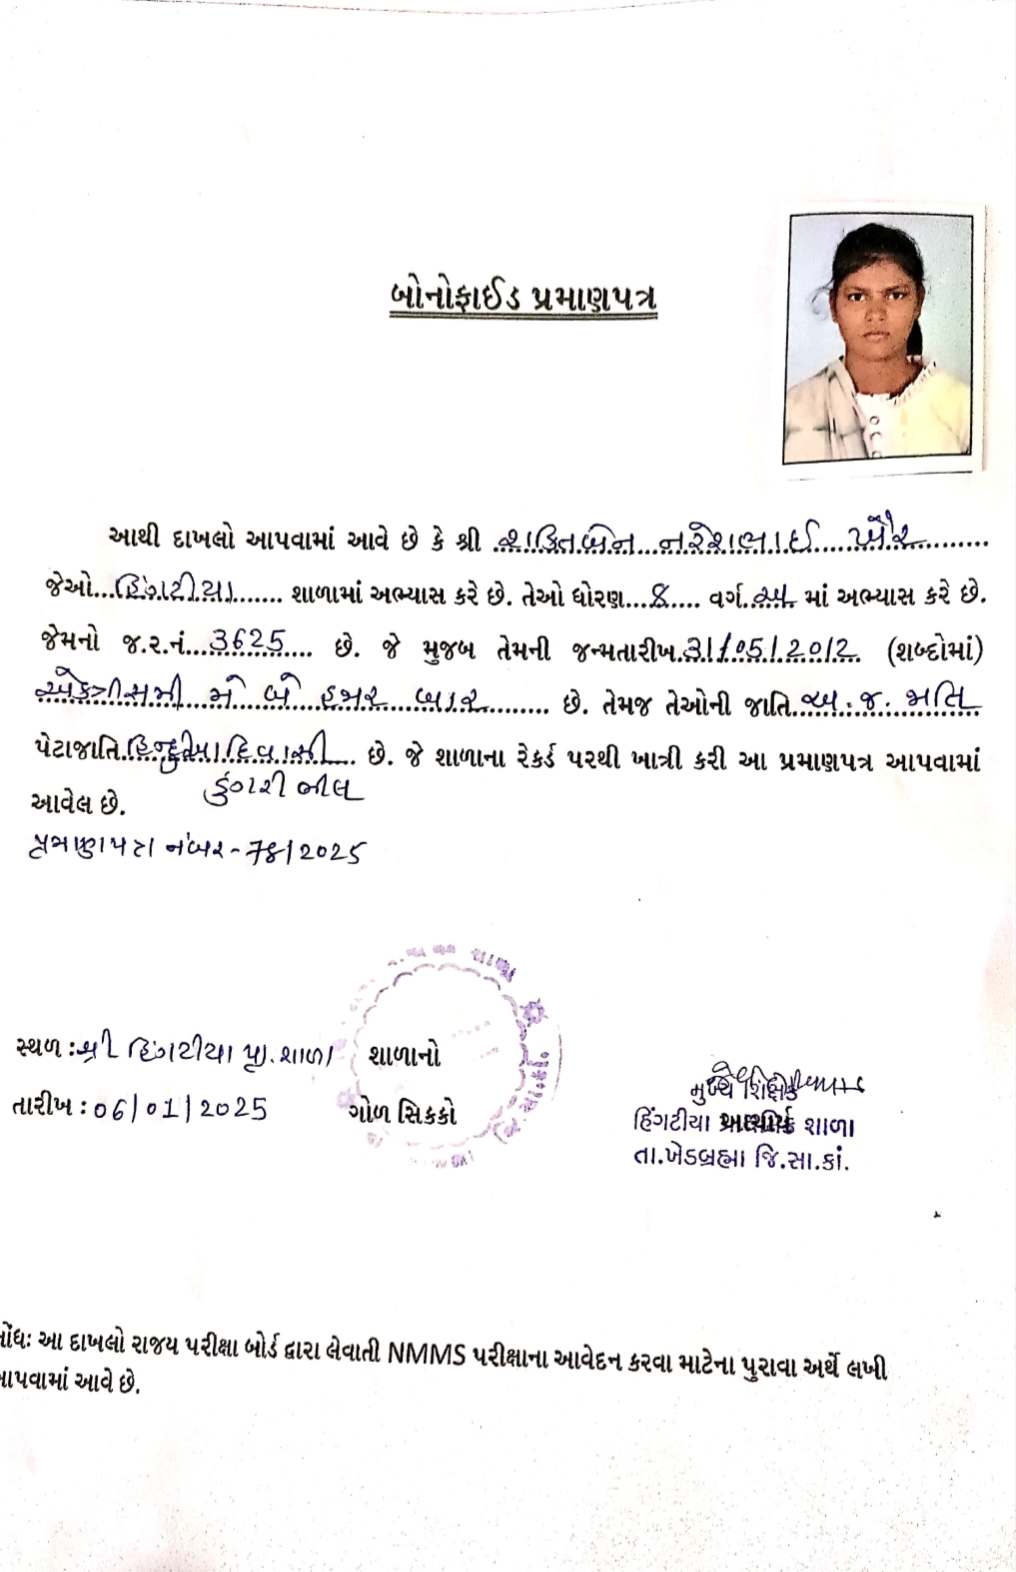 બોનોફાઈડ પ્રમાણપત્ર
આથી દાખલો આપવામાં આવે છે કે શ્રી શક્તિબેન નરેશભાઈ ખૈર
જેઓ હિંગટીયા શાળામાં અભ્યાસ કરે છે. તેઓ ધોરણ 8 વર્ગ અ માં અભ્યાસ કરે છે.
જેમનો જ.ર.નં. 3625 છે. જે મુજબ તેમની જન્મતારીખ 31/05/2012 (શબ્દોમાં)
એકત્રીસમી મે બે હજાર બાર છે. તેમજ તેઓની જાતિ અ.જ. જાતિ
પેટાજાતિ હિન્દુ આદિવાસી છે. જે શાળાના રેકર્ડ પરથી ખાત્રી કરી આ પ્રમાણપત્ર આપવામાં
ડુંગરી ભીલ
આવેલ છે.
પ્રમાણપત્ર નંબર - 78/2025
સ્થળ : શ્રી હિંગટીયા પ્રા. શાળા શાળાનો
તારીખ : 06/01/2025 ગોળ સિક્કો
મુખ્ય શિક્ષક
હિંગટીયા શાળા
તા.ખેડબ્રહ્મા જિ.સા.કાં.
નોંધ: આ દાખલો રાજય પરીક્ષા બોર્ડ દ્વારા લેવાતી NMMS પરીક્ષાના આવેદન કરવા માટેના પુરાવા અર્થે લખી
આપવામાં આવે છે.